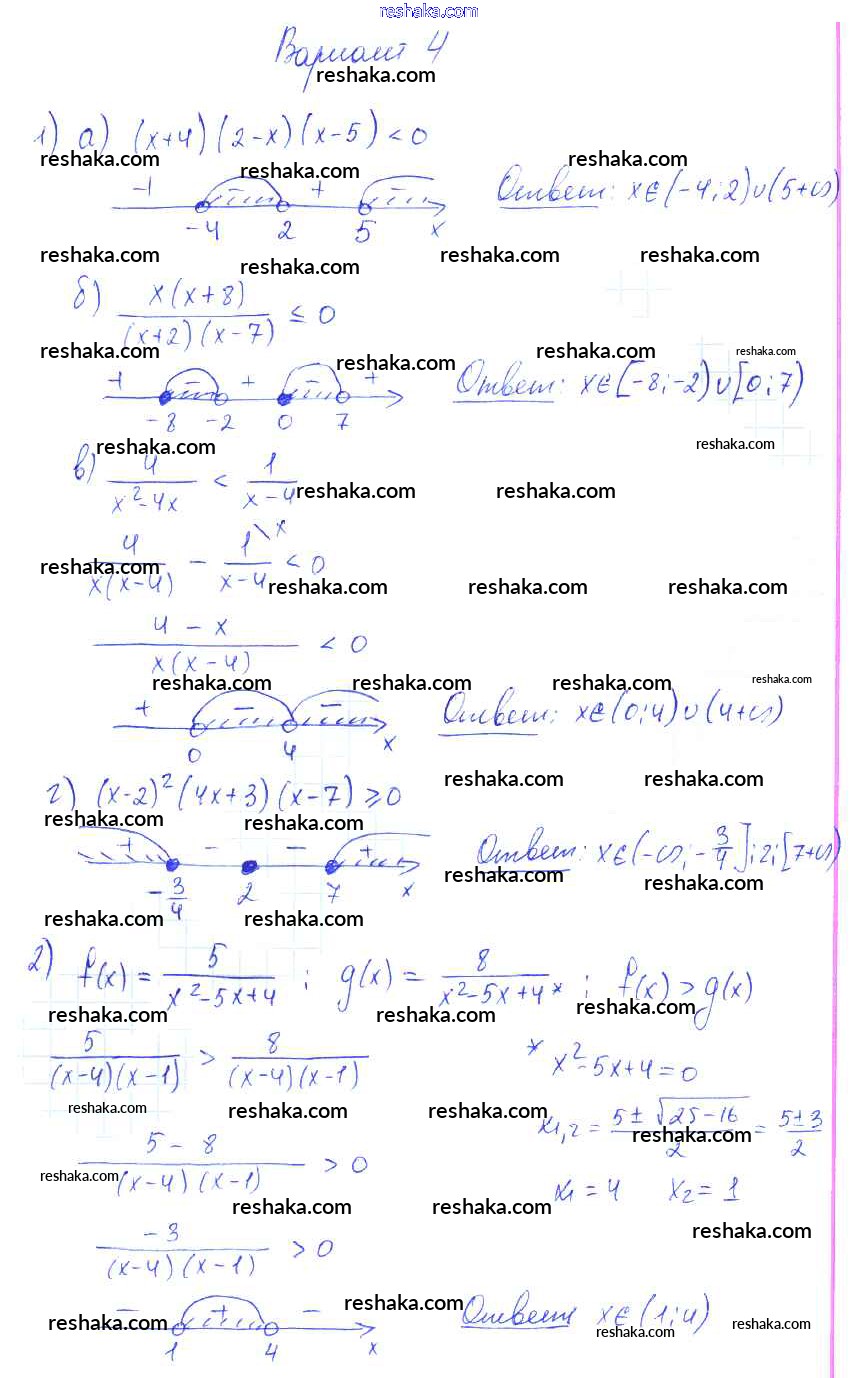 reshaka.com
Вариант 4
reshaka.com
1) а) (x+4)(2-x)(x-5) < 0
reshaka.com reshaka.com reshaka.com
+ - + -
Ответ: x∈(-4;2)∪(5+∞)
-4 2 5 x
reshaka.com reshaka.com reshaka.com reshaka.com
б) x(x+8) / (x+2)(x-7) ≤ 0
reshaka.com reshaka.com reshaka.com reshaka.com
+ - + - +
Ответ: x∈[-8;-2)∪[0;7)
-8 -2 0 7
reshaka.com reshaka.com
в) 4 / x²-4x < 1 / x-4
reshaka.com reshaka.com
4 / x(x-4) - 1\x / x-4 < 0
reshaka.com reshaka.com reshaka.com reshaka.com
4 - x / x(x-4) < 0
reshaka.com reshaka.com reshaka.com reshaka.com
+ - -
Ответ: x∈(0;4)∪(4+∞)
0 4 x
reshaka.com reshaka.com
г) (x-2)²(4x+3)(x-7) ≥ 0
reshaka.com reshaka.com
+ - - +
Ответ: x∈(-∞;-3/4];2;[7+∞)
-3/4 2 7 x
reshaka.com reshaka.com
reshaka.com reshaka.com
2) f(x) = 5 / x²-5x+4 ; g(x) = 8 / x²-5x+4 * ; f(x) > g(x)
reshaka.com reshaka.com reshaka.com
5 / (x-4)(x-1) > 8 / (x-4)(x-1)
* x²-5x+4=0
reshaka.com reshaka.com reshaka.com
x1,2 = 5±√25-16 / 2 = 5±3 / 2
reshaka.com
5 - 8 / (x-4)(x-1) > 0
reshaka.com
x1 = 4 x2 = 1
reshaka.com reshaka.com
reshaka.com
-3 / (x-4)(x-1) > 0
- + -
Ответ x∈(1;4)
reshaka.com reshaka.com reshaka.com reshaka.com
1 4 x